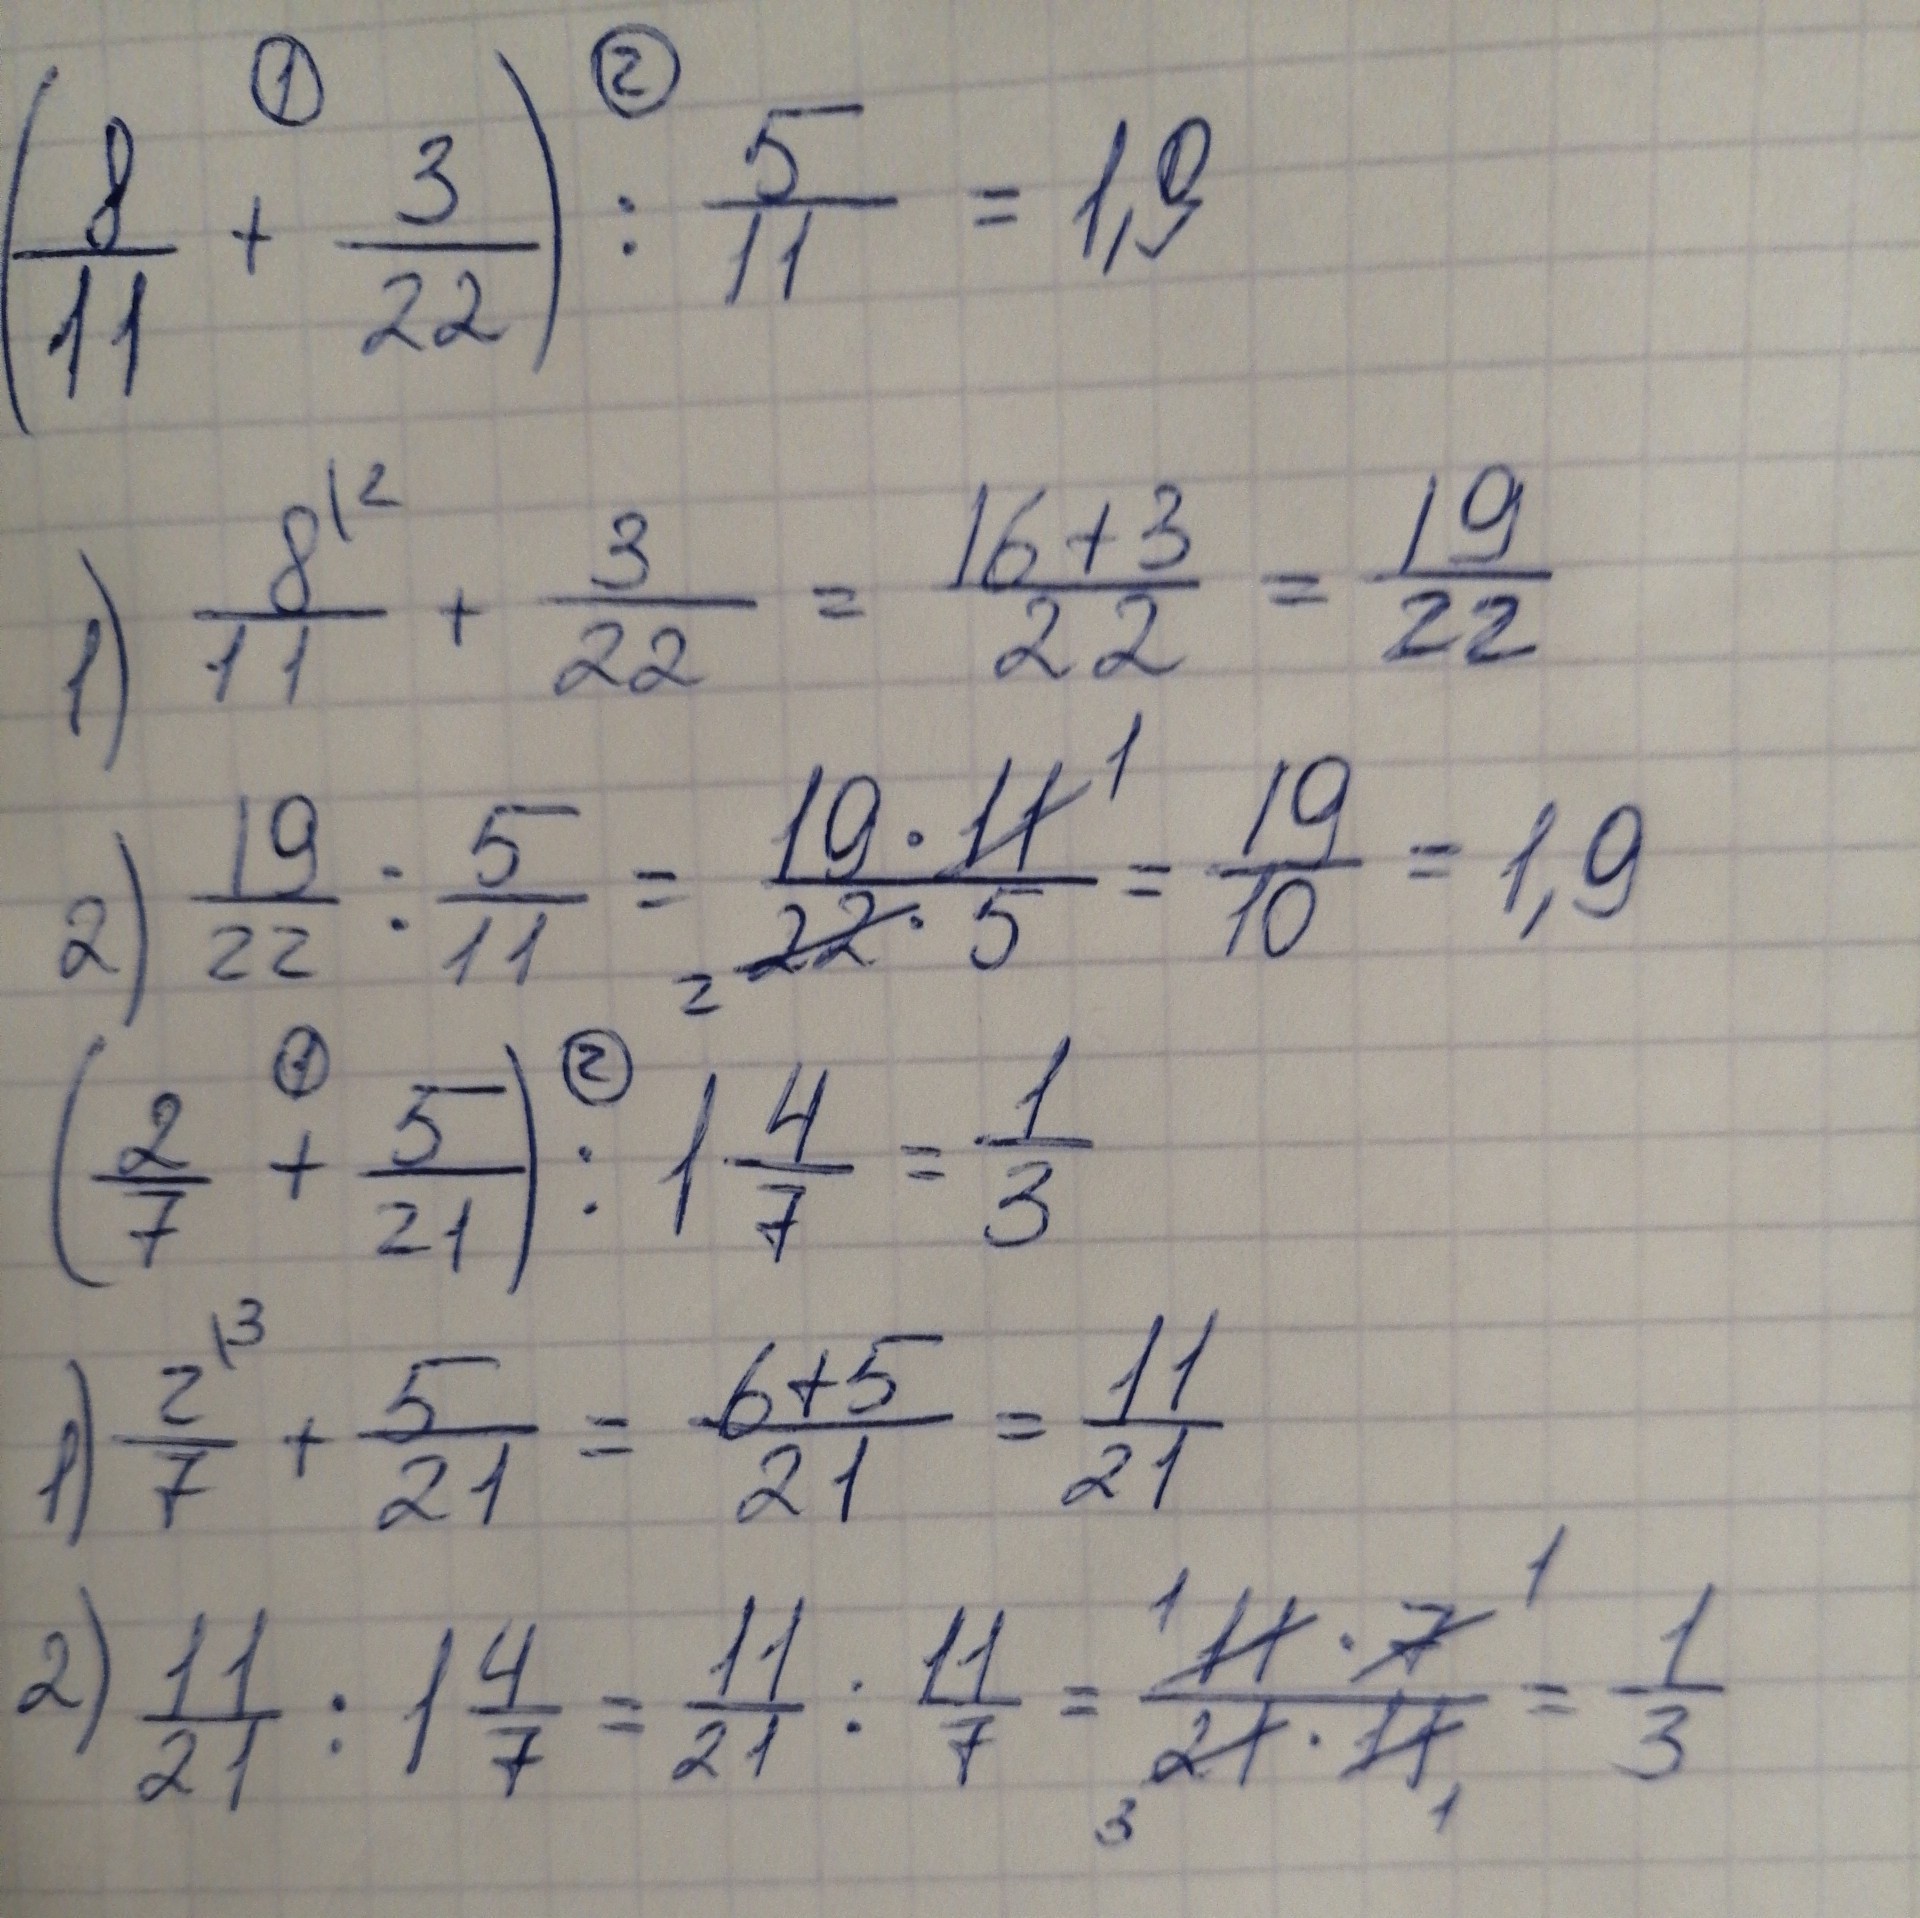 (8/11 + 3/22) : 5/11 = 1,9 ① ②
1) 8/11 |2 + 3/22 = 16+3/22 = 19/22
2) 19/22 : 5/11 = 19·11/22·5 1 2 = 19/10 = 1,9
(2/7 + 5/21) : 1 4/7 = 1/3 ① ②
1) 2/7 |3 + 5/21 = 6+5/21 = 11/21
2) 11/21 : 1 4/7 = 11/21 : 11/7 = 11·7/21·11 1 1 3 1 = 1/3